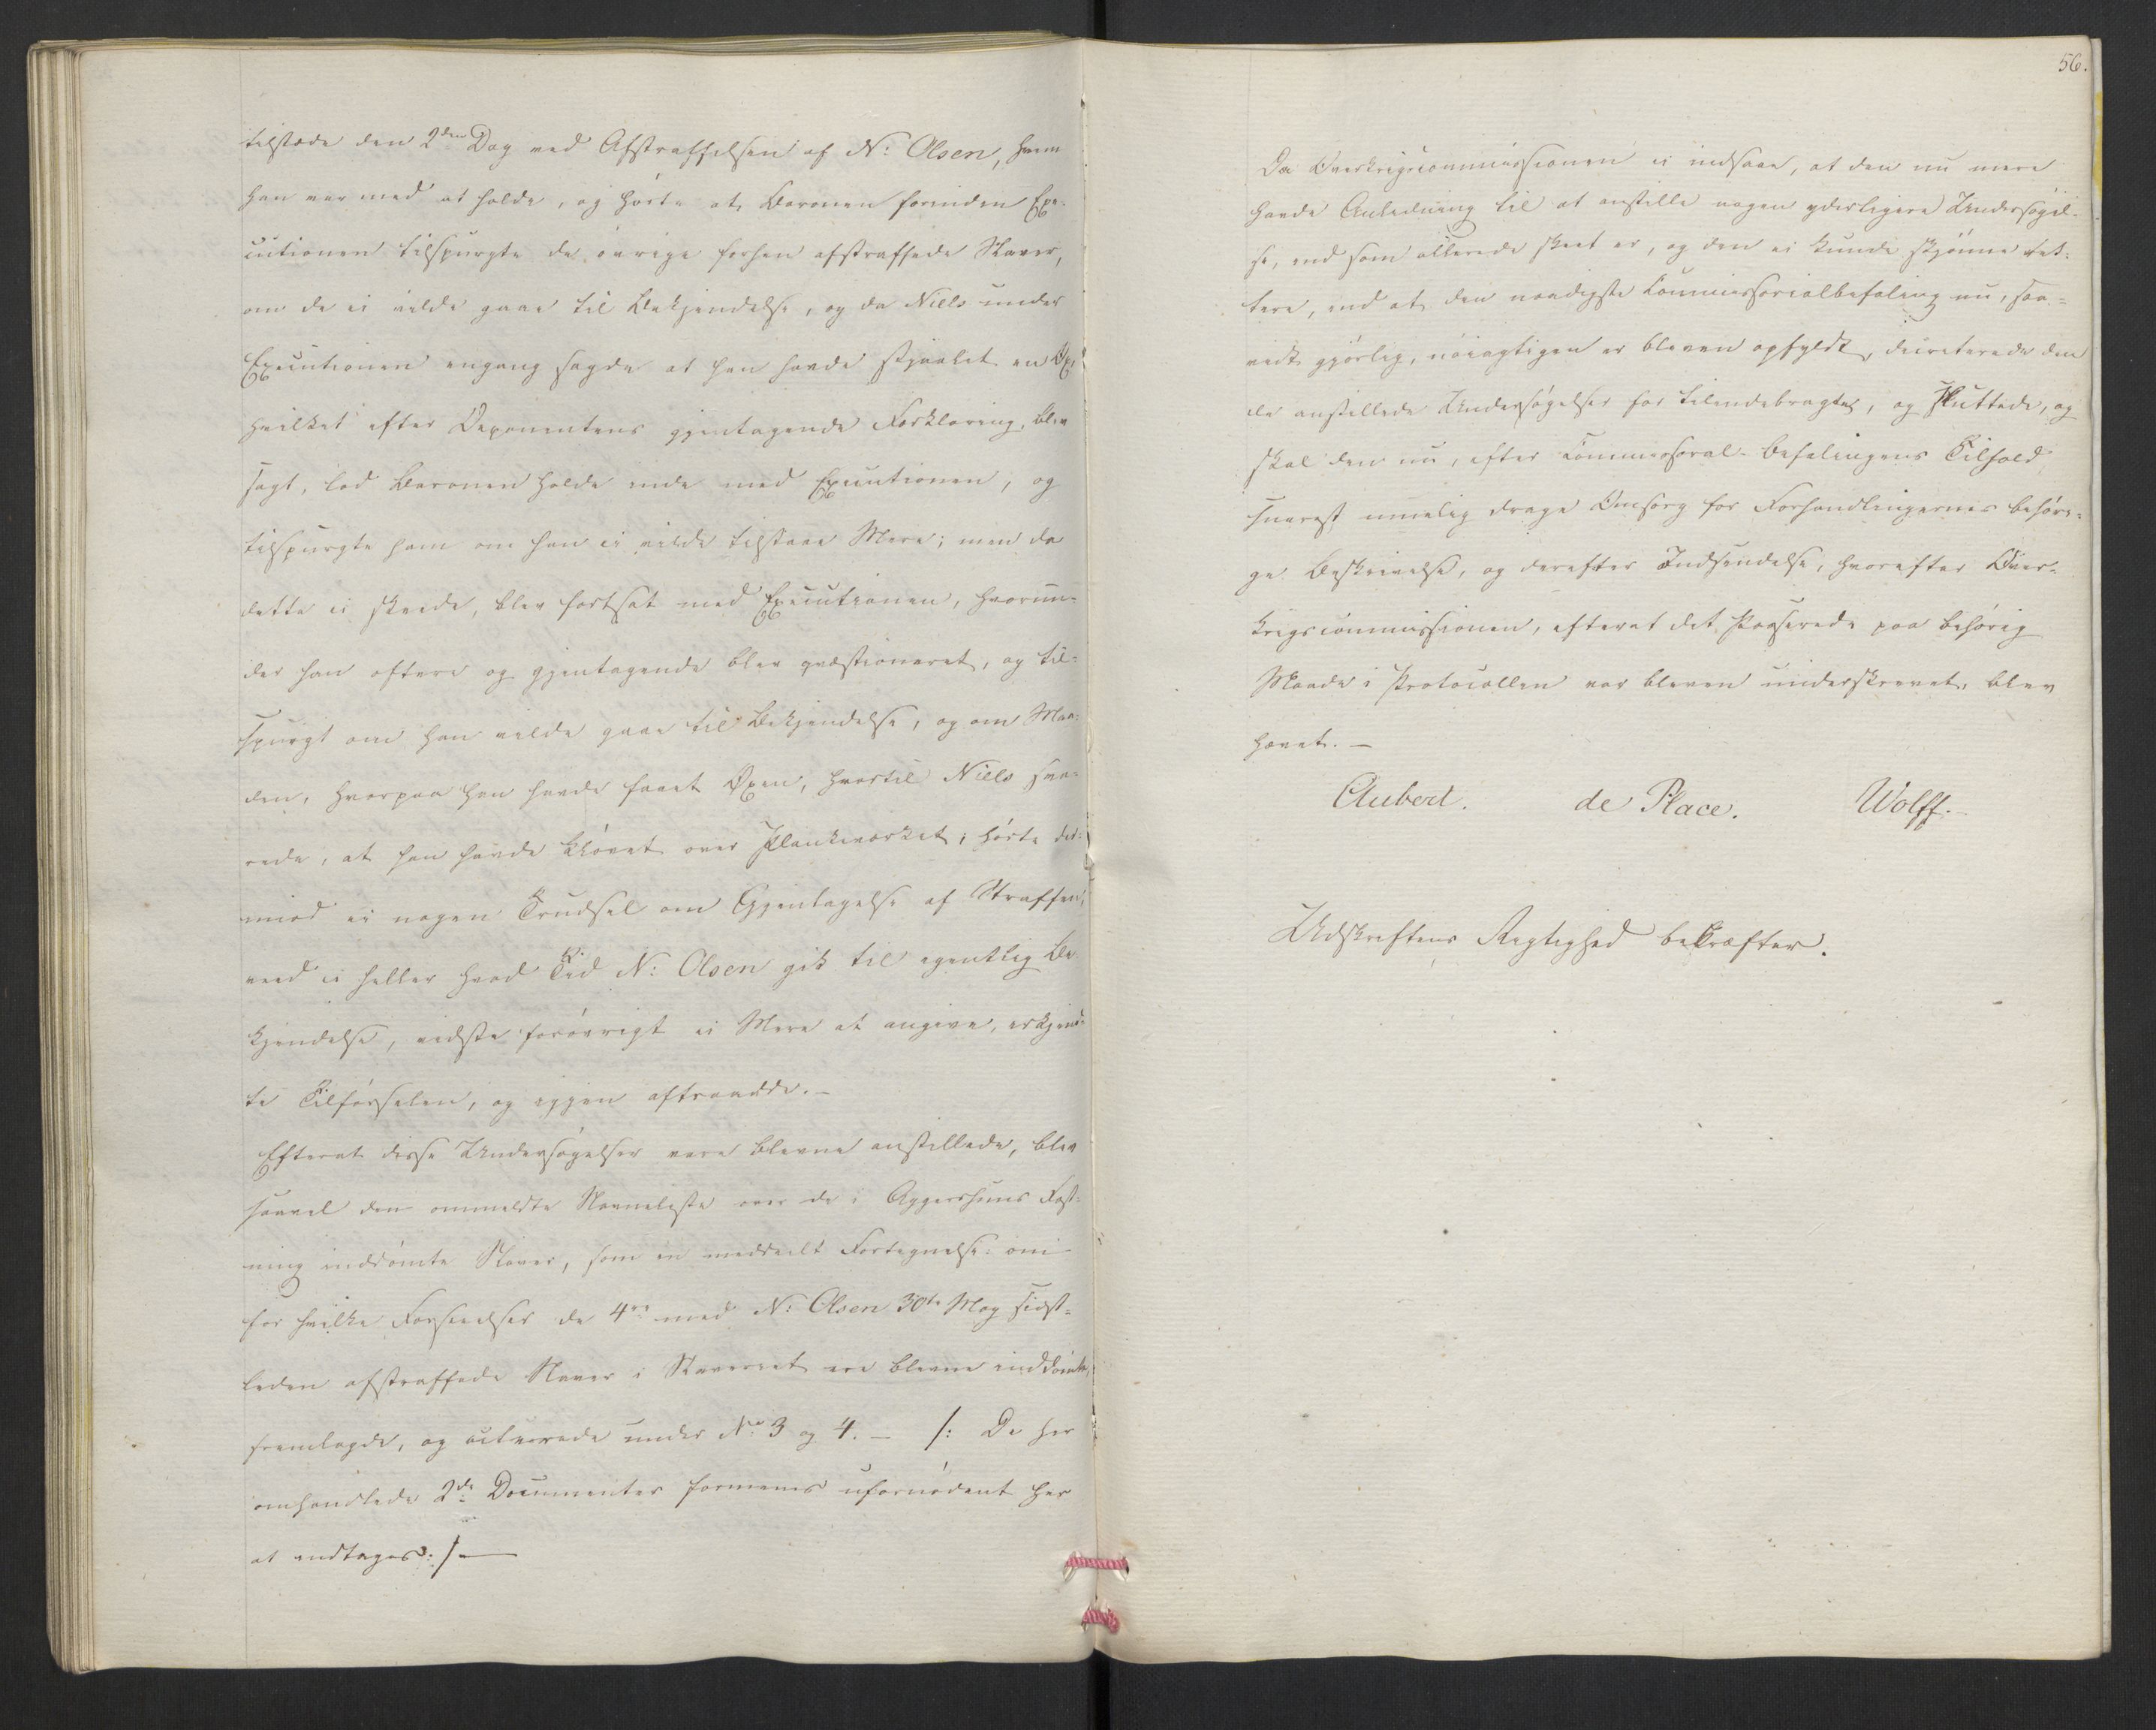 tilstæde den 2den Dag ved Afstraffelsen af N: Olsen, hvem
han var med at holde, og hørte at Baronen forinden Exe-
cutionen tilspurgte de øvrige forhen afstraffede Slaver,
om de ei vilde gaae til Bekjendelse, og da Niels under
Executionen engang sagde at han havde stjaalet en Øxe
hvilket efter Deponentens gjentagende Forklaring, blev
sagt, lod Baronen holde inde med Executionen, og
tilspurgte ham om han ei vilde tilstaae Mere; men da
dette ei skeede, blev fortsat med Executionen, hvorun-
der han oftere og gjentagende blev qvæstioneret, og til-
spurgt om han vilde gaae til Bekjendelse, og om Maa-
den, hvorpaa han havde faaet Øxen, hvortil Niels sva-
rede, at han havde kløvet over Plankeværket; hørte der-
imod ei nogen Trudsel om Gjentagelse af Straffen,
veed ei heller hvad Tid N: Olsen gik til egentlig Be-
kjendelse, vidste forøvrigt ei Mere at angive, erkjend-
te Tilførselen, og igjen aftraadde. –
Efterat disse Undersøgelser vare blevne anstillede, blev
saavel den ommeldte Navneliste over de i Aggershuus Fæst-
ning inddømte Slaver, som en meddeelt Fortegnelse: om
for hvilke Forseelser de 4re med N: Olsen 30te May sidst-
leden afstraffede Slaver i Slaveriet ere blevne inddømte,
fremlagde, og acterede under No 3 og 4. – /: De her
omhandlede 2de Documenter formenes ufornødent her
at indtages :/ –
56.
Da Overkrigscommissionen ei indsaae, at den nu mere
havde Anledning til at anstille nogen yderligere Undersøgel-
se, end som allerede skeet er, og den ei kunde skjønne ret-
tere, end at den naadigste Commissorialbefaling nu, saa-
vidt gjørlig, nøiagtigen er bleven opfyldt, decreterede den
de anstillede Undersøgelser for tilendebragte, og sluttede, og
skal den nu, efter Commissoral-Befalingens Tilhold,
snarest muelig drage Omsorg for Forhandlingernes behøri-
ge Beskrivelse, og derefter Indsendelse, hvorefter Over-
krigscommissionen, efterat det Passerede paa behørig
Maade i Protocollen var bleven underskrevet, blev
hævet. –
Aubert. de Place. Wolff.
Udskriftens Rigtighed bekræfter.